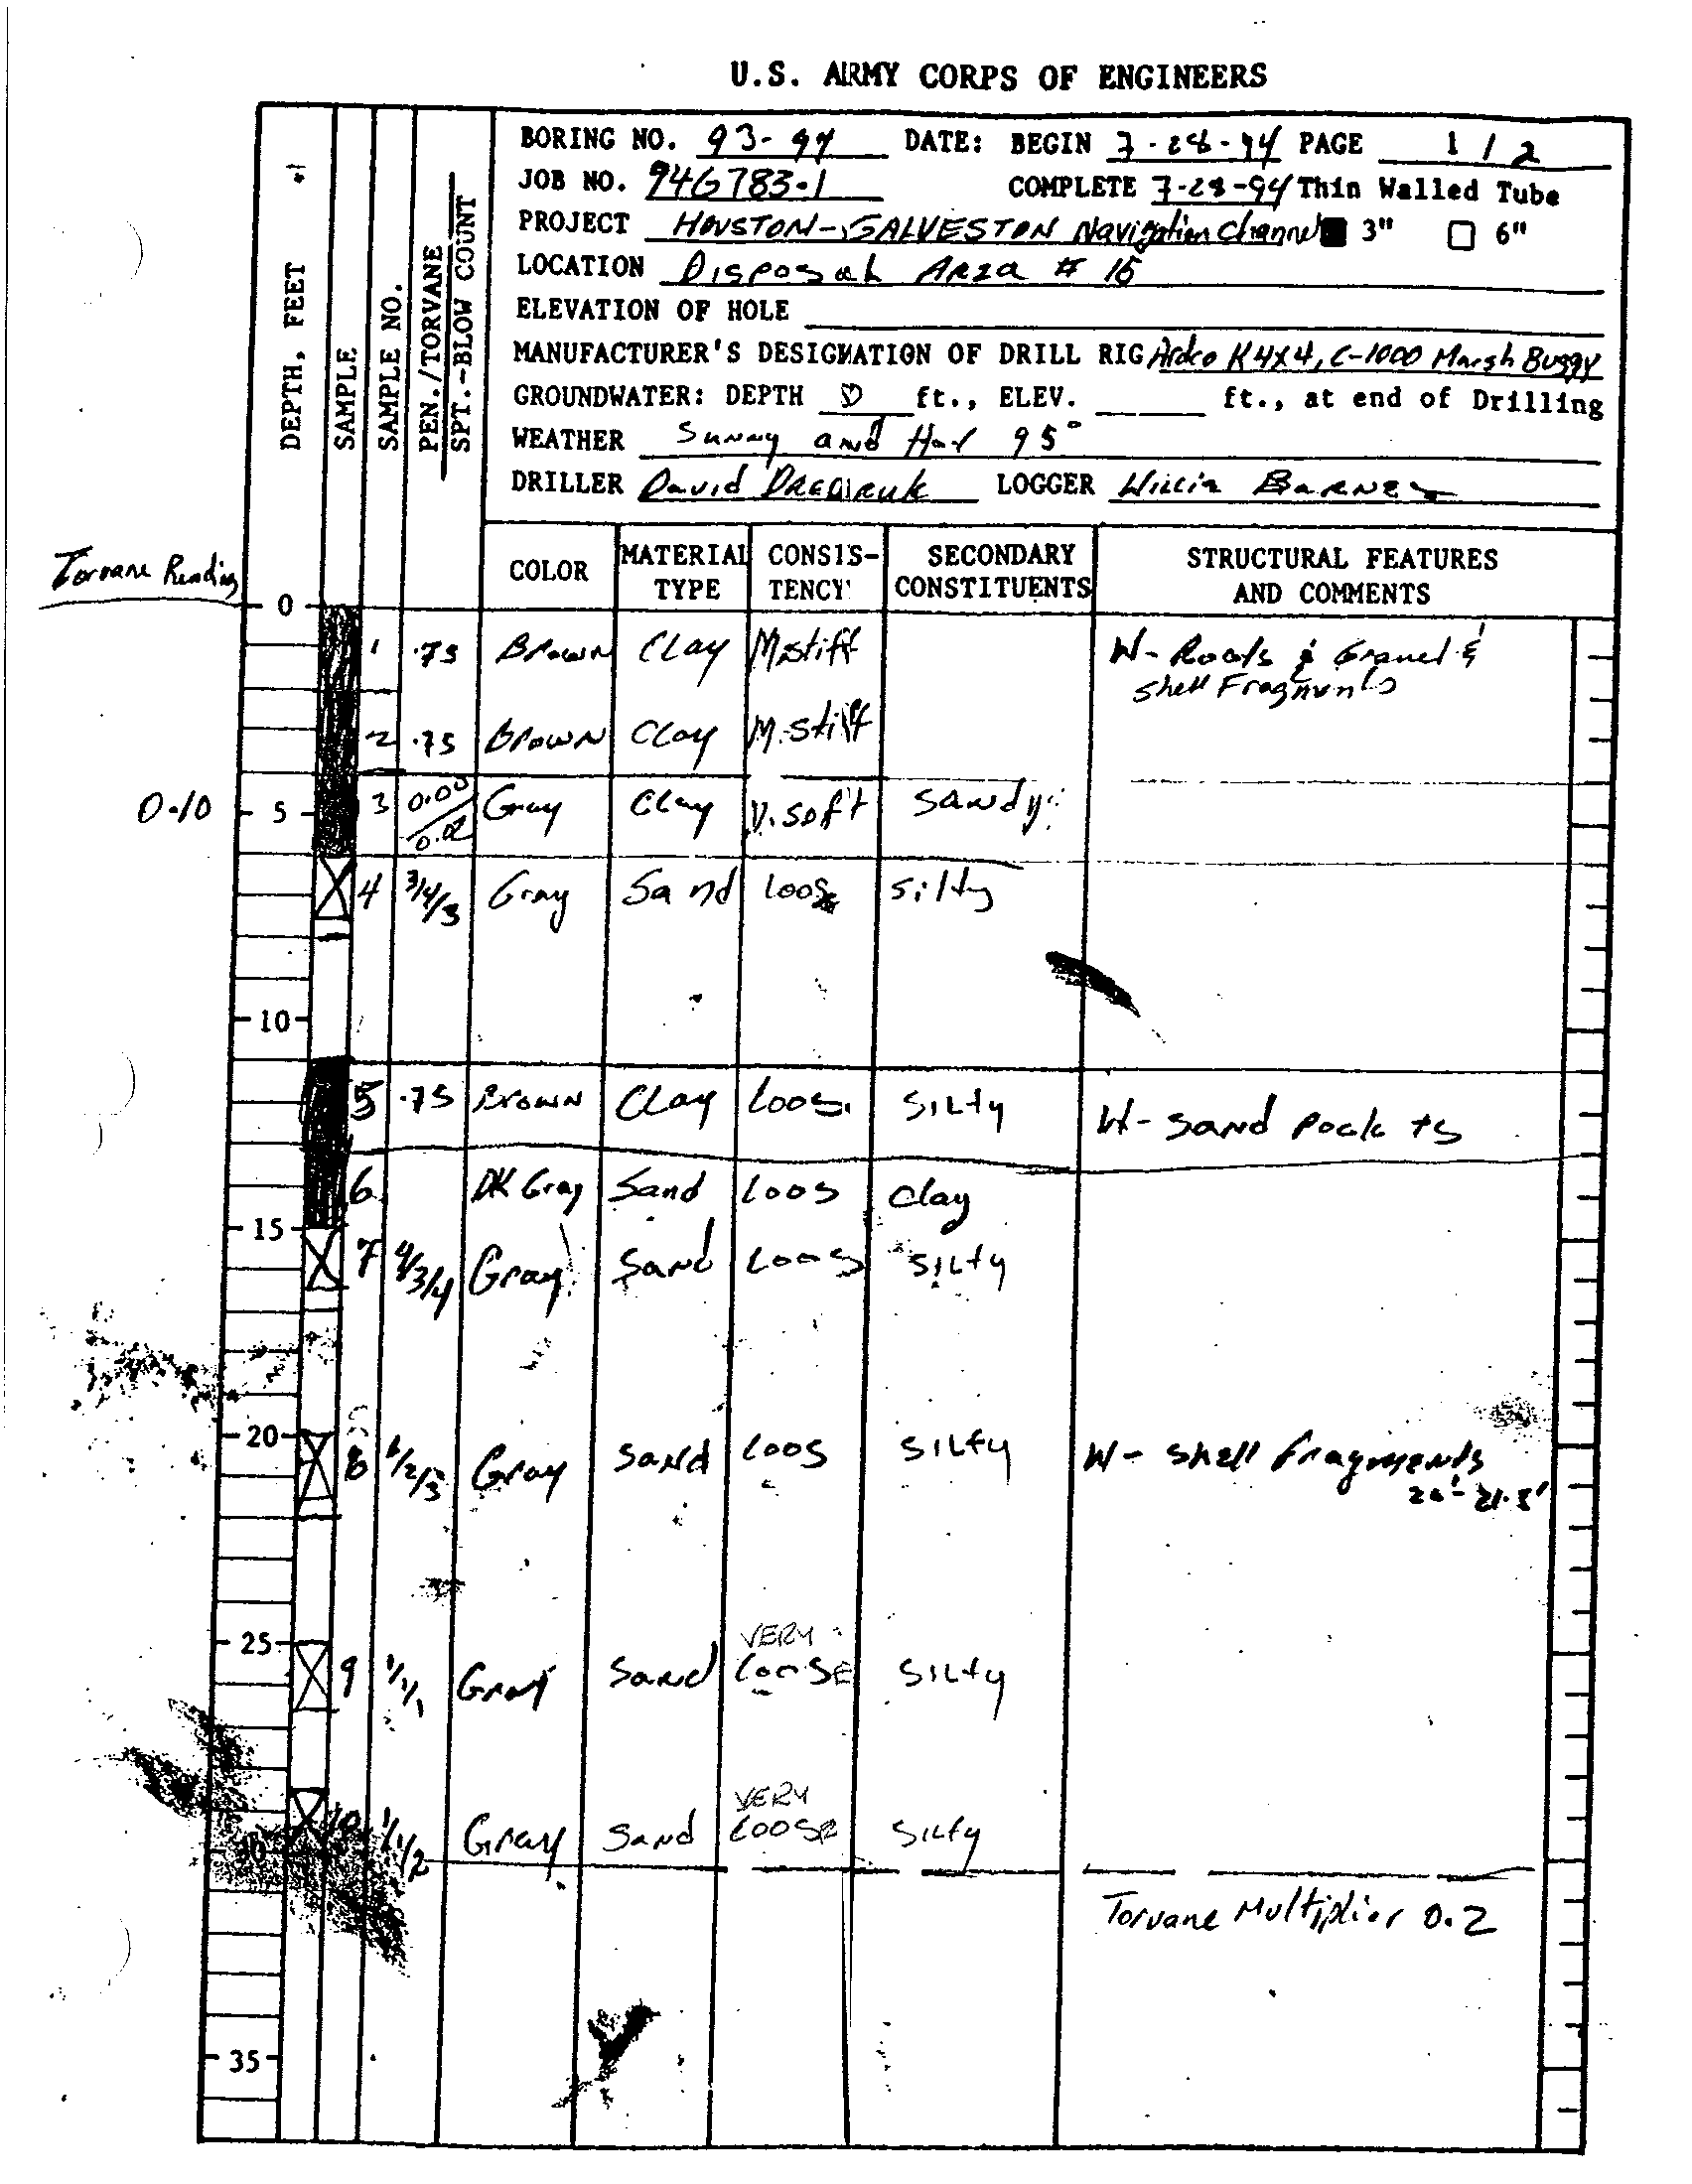 U.S. ARMY CORPS OF ENGINEERS
BORING NO. 93-94 DATE: BEGIN 7-28-94 PAGE 1 / 2
JOB NO. 94G783.1 COMPLETE 7-28-94 Thin Walled Tube
PROJECT HOUSTON-GALVESTON Navigation Channel 3" 6"
LOCATION Disposal Area # 15
ELEVATION OF HOLE
MANUFACTURER'S DESIGNATION OF DRILL RIG Ardco K4x4, C-1000 Marsh Buggy
GROUNDWATER: DEPTH ft., ELEV. ft., at end of Drilling
WEATHER Sunny and Hot 95°
DRILLER David LOGGER Barnes
DEPTH, FEET
SAMPLE
SAMPLE NO.
PEN./TORVANE
SPT.-BLOW COUNT
Torvane Reading
COLOR MATERIAL TYPE CONSIS-TENCY SECONDARY CONSTITUENTS STRUCTURAL FEATURES AND COMMENTS
0
1 .75 Brown Clay M.stiff W- Roots & Gravel &
Shell Fragments
2 .75 Brown Clay M.stiff
0.10 5 3 0.00/0.02 Gray Clay V.soft Sandy
4 3/4/3 Gray Sand loose silty
10
5 .75 Brown Clay Loos. SILty W- Sand Pock ts
6 DK Gray Sand Loos Clay
15
7 4/3/4 Gray Sand Loos SILty
20 8 1/2/3 Gray Sand Loos SILty W- Shell fragments
20'-21.5'
25
VERY
9 1/1/1 Gray Sand LOOSE SILty
VERY
30 10 1/1/2 Gray Sand LOOSE SILty
Torvane Multiplier 0.2
35